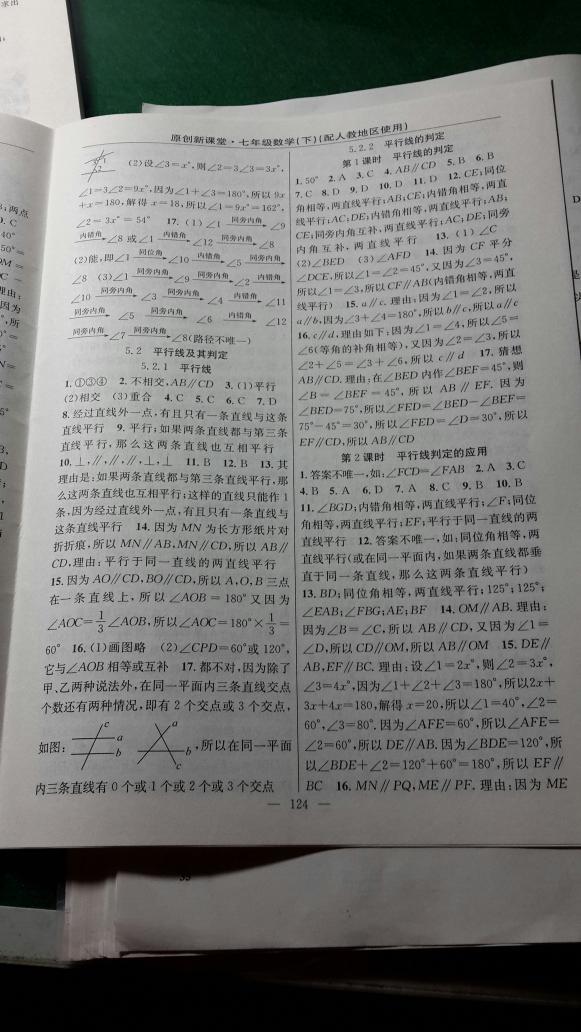 原创新课堂·七年级数学(下)(配人教地区使用)
(2)设∠3=x°,则∠2=3∠3=3x°,
∠1=3∠2=9x°,因为∠1+∠3=180°,所以9x
+x=180,解得x=18,所以∠1=9x°=162°,
∠2=3x°=54° 17.(1)∠1 同旁内角 ∠9
内错角 ∠8 或∠1 内错角 ∠12 同旁内角 ∠8
(2)能,即∠1 同位角 ∠10 内错角 ∠5 同旁内角
∠8 (3)∠1 同旁内角 ∠9 同旁内角 ∠2 内错角
∠10 同旁内角 ∠3 同旁内角 ∠4 内错角 ∠11
同旁内角 ∠5 同旁内角 ∠6 内错角 ∠12
同旁内角 ∠7 同旁内角 ∠8(路径不唯一)
5.2 平行线及其判定
5.2.1 平行线
1.①③④ 2.不相交,AB∥CD 3.(1)平行
(2)相交 (3)重合 4.C 5.C 6.C 7.D
8.经过直线外一点,有且只有一条直线与这条
直线平行 9.平行;如果两条直线都与第三条
直线平行,那么这两条直线也互相平行
10.⊥,∥,∥,∥,⊥,⊥ 11.B 12.B 13.其
理由是:如果两条直线都与第三条直线平行,那
么这两条直线也互相平行;这样的直线只能作1
条,因为经过直线外一点,有且只有一条直线与
这条直线平行 14.因为MN为长方形纸片对
折折痕,所以MN∥AB,MN∥CD,所以AB∥
CD,理由:平行于同一直线的两直线平行
15.因为AO∥CD,BO∥CD,所以A,O,B三点
在一条直线上,所以∠AOB=180°又因为
∠AOC=1/3∠AOB,所以∠AOC=180°×1/3=
60° 16.(1)画图略 (2)∠CPD=60°或120°,
它与∠AOB相等或互补 17.都不对,因为除了
甲、乙两种说法外,在同一平面内三条直线交点
个数还有两种情况,即有2个交点或3个交点,
如图: c a b a b c ,所以在同一平面
内三条直线有0个或1个或2个或3个交点
5.2.2 平行线的判定
第1课时 平行线的判定
1.50° 2.A 3.C 4.AB∥CD 5.B 6.B
7.C 8.D 9.D 10.D 11.D 12.CE;同位
角相等,两直线平行;AB;CE;内错角相等,两直
线平行;AC;DE;内错角相等,两直线平行;AB;
CE;同旁内角互补,两直线平行;AC;DE;同旁
内角互补,两直线平行 13.(1)∠C
(2)∠BED (3)∠AFD 14.因为CF平分
∠DCE,所以∠1=∠2=45°,又因为∠3=45°,
所以∠1=∠3,所以CF∥AB(内错角相等,两直
线平行) 15.a∥c.理由:因为∠1=∠2,所以
a∥b,因为∠3+∠4=180°,所以b∥c,所以a∥c
16.c∥d,理由如下:因为∠1=∠4,所以∠5=
∠6(等角的补角相等),又因为∠2=∠3,所以
∠2+∠5=∠3+∠6,所以c∥d 17.猜想
AB∥CD.理由:在∠BED内作∠BEF=45°,则
∠B=∠BEF=45°,所以AB∥EF.因为
∠BED=75°,所以∠FED=∠BED-∠BEF=
75°-45°=30°,所以∠FED=∠D=30°,所以
EF∥CD,所以AB∥CD
第2课时 平行线判定的应用
1.答案不唯一,如:∠FCD=∠FAB 2.A 3.C
4.B 5.A 6.D 7.A 8.C 9.B 10.B
11.∠BGD;内错角相等,两直线平行;∠F;同位
角相等,两直线平行;EF;平行于同一直线的两
直线平行 12.答案不唯一,如:同位角相等,两
直线平行(或在同一平面内,如果两条直线都垂
直于同一条直线,那么这两条直线平行)
13.BD;同位角相等,两直线平行;125°;125°;
∠EAB;∠FBG;AE;BF 14.OM∥AB.理由:
因为∠B=∠C,所以AB∥CD,又因为∠1=
∠D,所以CD∥OM,所以AB∥OM 15.DE∥
AB,EF∥BC.理由:设∠1=2x°,则∠2=3x°,
∠3=4x°,因为∠1+∠2+∠3=180°,所以2x+
3x+4x=180,解得x=20,所以∠1=40°,∠2=
60°,∠3=80°.因为∠AFE=60°,所以∠AFE=
∠2=60°,所以DE∥AB.因为∠BDE=120°,所
以∠BDE+∠2=120°+60°=180°,所以EF∥
BC 16.MN∥PQ,ME∥PF.理由:因为ME
— 124 —